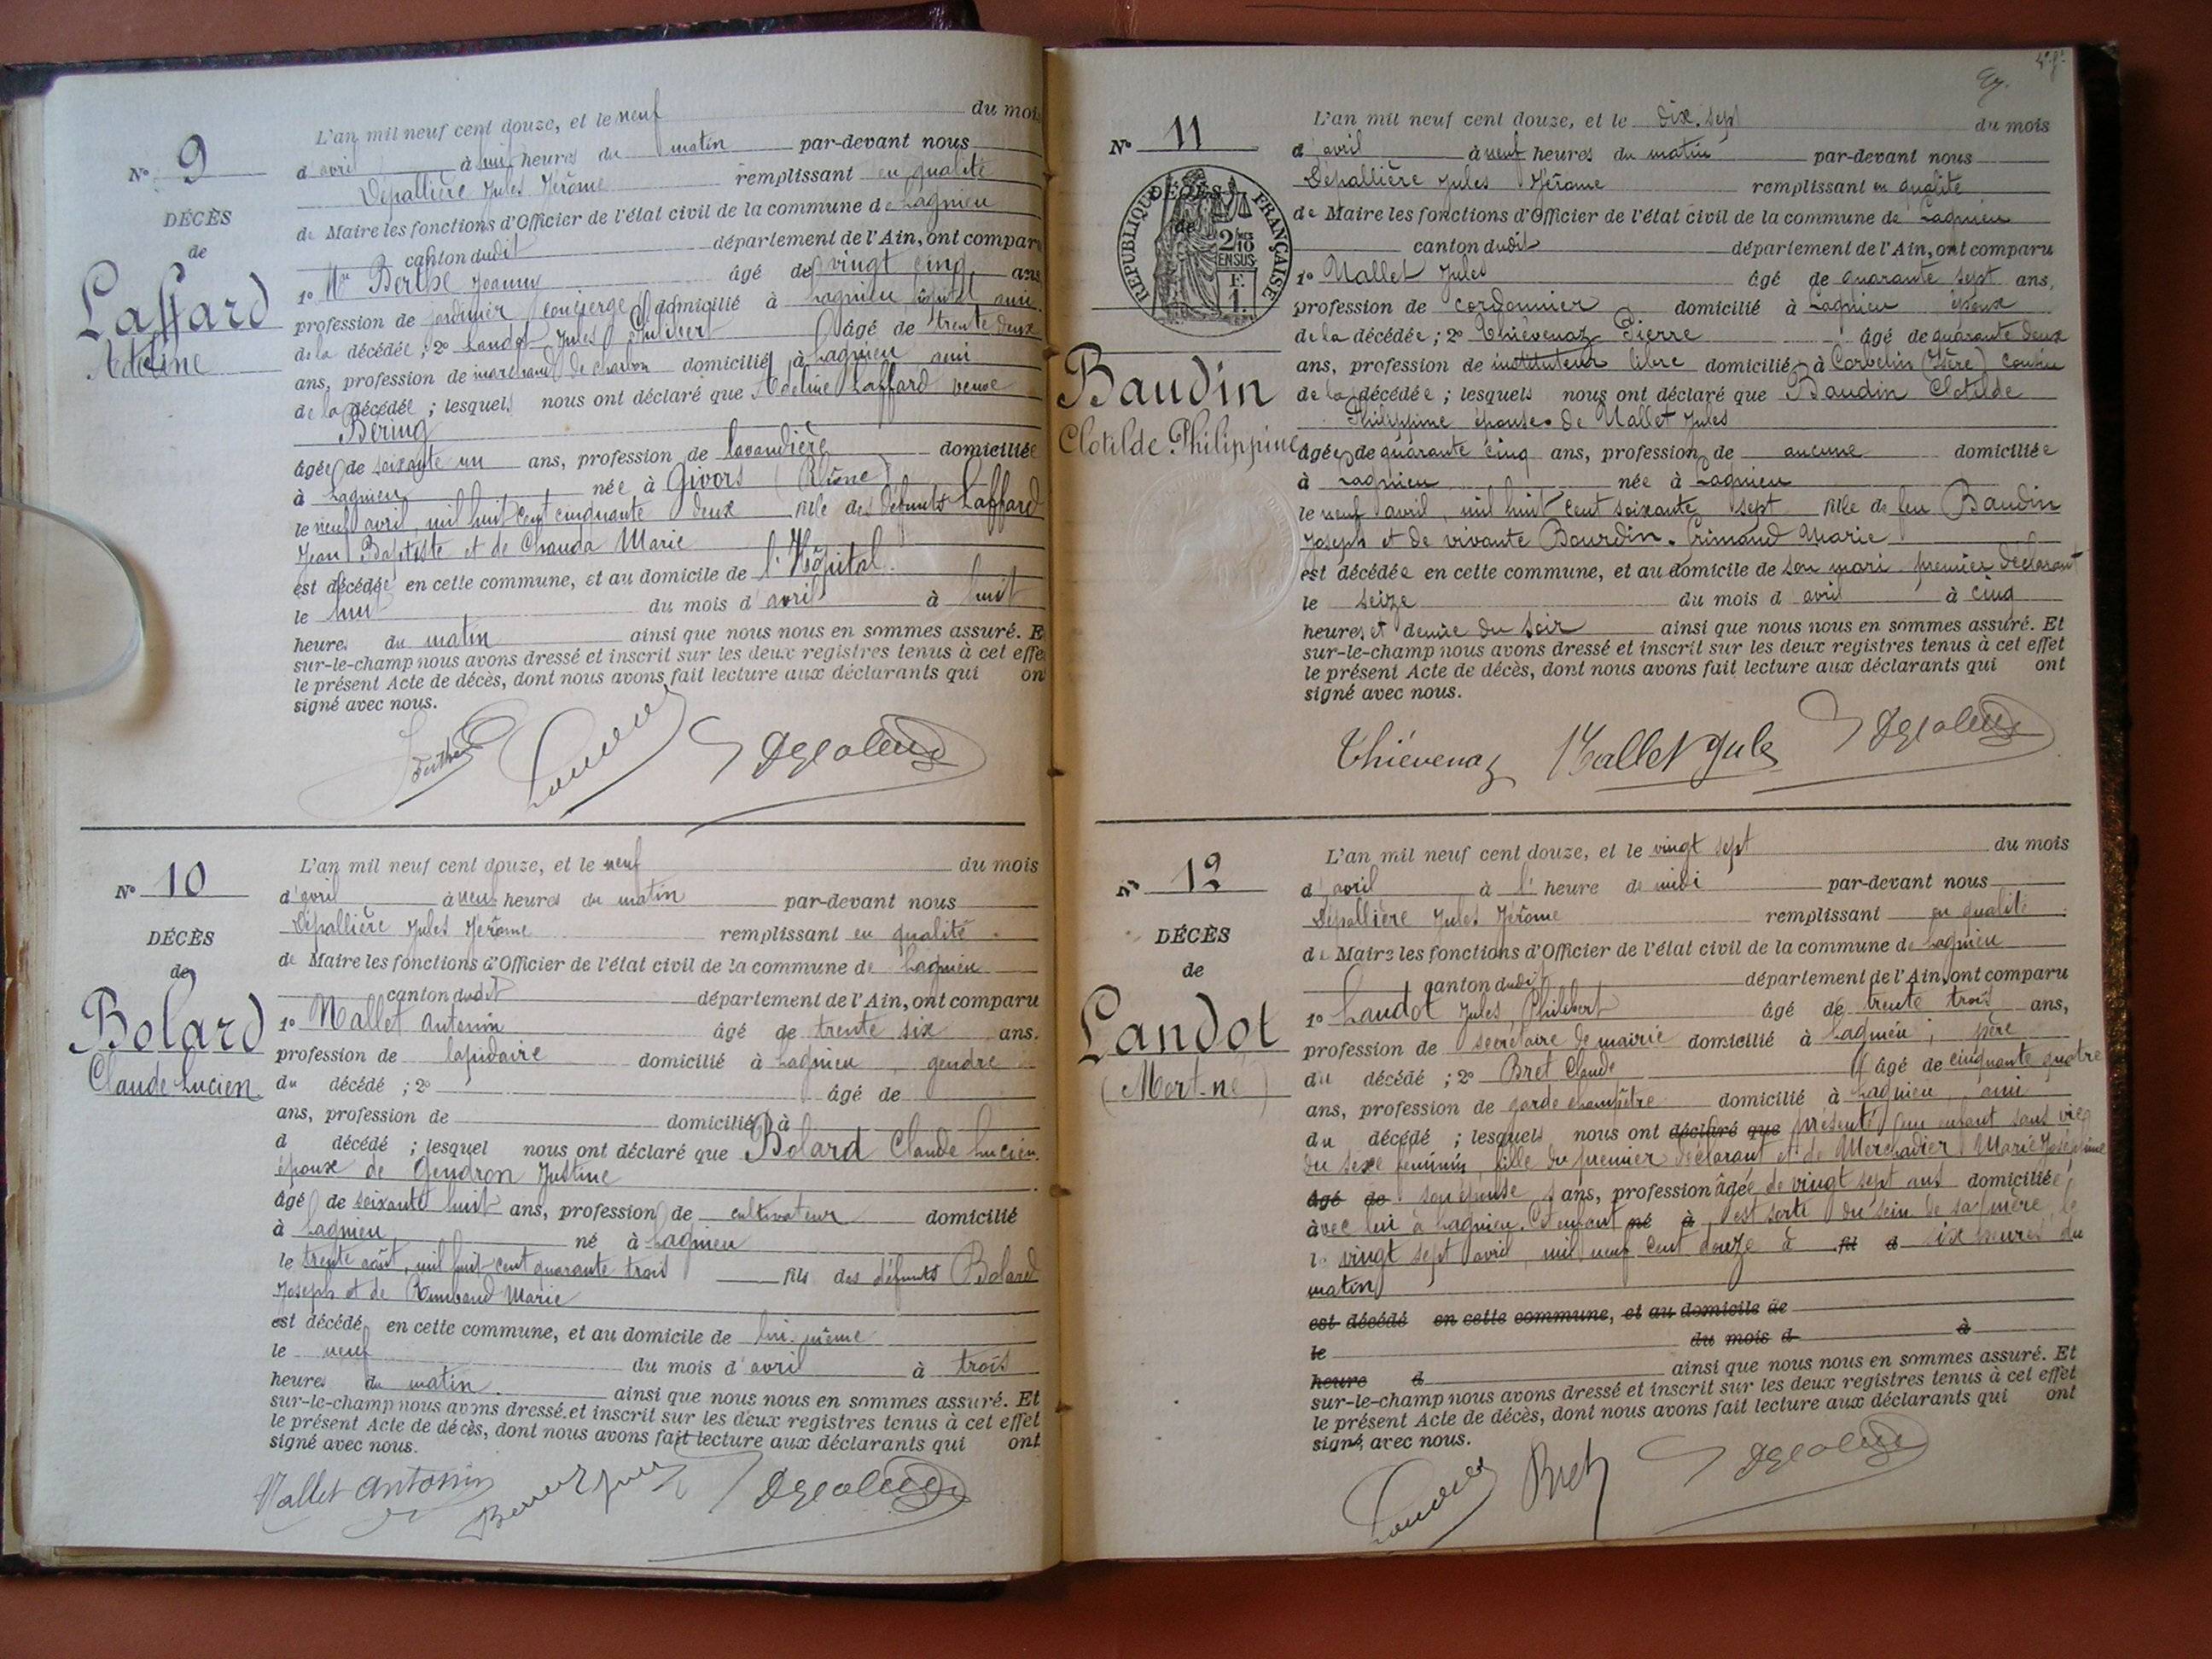 N° 9
DÉCÈS
de
Laffard
Adeline
L'an mil neuf cent douze, et le neuf du mois
d'avril à huit heures du matin par-devant nous
Dépallière Jules Jérôme remplissant en qualité
de Maire les fonctions d'Officier de l'état civil de la commune de Lagnieu
canton dudit département de l'Ain, ont comparu
1° Mr Berthe Joanny âgé de vingt cinq ans
profession de jardinier concierge domicilié à Lagnieu hôpital ami
de la décédée ; 2° Landot Jules Philibert âgé de trente deux
ans, profession de marchand de charbon domicilié à Lagnieu ami
de la décédée ; lesquels nous ont déclaré que Adeline Laffard veuve
Bering
âgée de soixante un ans, profession de lavandière domiciliée
à Lagnieu née à Givors (Rhône)
le neuf avril, mil huit cent cinquante deux fille des défunts Laffard
Jean Baptiste et de Marie
est décédée en cette commune, et au domicile de l'Hôpital
le huit du mois d'avril à huit
heures du matin ainsi que nous nous en sommes assuré. E
sur-le-champ nous avons dressé et inscrit sur les deux registres tenus à cet effe
le présent Acte de décès, dont nous avons fait lecture aux déclarants qui on
signé avec nous.
N° 10
DÉCÈS
de
Bolard
Claude Lucien
L'an mil neuf cent douze, et le neuf du mois
d'avril à neuf heures du matin par-devant nous
Dépallière Jules Jérôme remplissant en qualité
de Maire les fonctions d'Officier de l'état civil de la commune de Lagnieu
canton dudit département de l'Ain, ont comparu
1° Mallet Antonin âgé de trente six ans.
profession de lapidaire domicilié à Lagnieu, gendre
du décédé ; 2° âgé de
ans, profession de domicilié à
d décédé ; lesquel nous ont déclaré que Bolard Claude Lucien
époux de Gendron Justine
âgé de soixante huit ans, profession de cultivateur domicilié
à Lagnieu né à Lagnieu
le trente août, mil huit-cent quarante trois fils des défunts Bolard
Joseph et de Rimbaud Marie
est décédé en cette commune, et au domicile de lui-même
le neuf du mois d'avril à trois
heures du matin. ainsi que nous nous en sommes assuré. Et
sur-le-champ nous avons dressé et inscrit sur les deux registres tenus à cet effet
le présent Acte de décès, dont nous avons fait lecture aux déclarants qui ont
signé avec nous.
Mallet Antonin
N° 11
RÉPUBLIQUE FRANÇAISE
DÉCÈS
de
2/10 EN SUS
F. 1.
Baudin
Clotilde Philippine
L'an mil neuf cent douze, et le dix-sept du mois
d'avril à neuf heures du matin par-devant nous
Dépallière Jules Jérôme remplissant en qualité
de Maire les fonctions d'Officier de l'état civil de la commune de Lagnieu
canton dudit département de l'Ain, ont comparu
1° Mallet Jules âgé de quarante sept ans,
profession de cordonnier domicilié à Lagnieu époux
de la décédée ; 2° Thievenaz Pierre âgé de quarante deux
ans, profession de instituteur libre domicilié à Corbelin (Isère) cousin
de la décédée ; lesquels nous ont déclaré que Baudin Clotilde
Philippine épouse de Mallet Jules
âgée de quarante cinq ans, profession de aucune domiciliée
à Lagnieu née à Lagnieu
le neuf avril, mil huit cent soixante sept fille de feu Baudin
Joseph et de vivante Bourdin-Grimaud Marie
est décédée en cette commune, et au domicile de son mari premier déclarant
le seize du mois d'avril à cinq
heures et demie du soir ainsi que nous nous en sommes assuré. Et
sur-le-champ nous avons dressé et inscrit sur les deux registres tenus à cet effet
le présent Acte de décès, dont nous avons fait lecture aux déclarants qui ont
signé avec nous.
Thiévenaz Mallet Jules
N° 12
DÉCÈS
de
Landot
(Mort-né)
L'an mil neuf cent douze, et le vingt sept du mois
d'avril à l'heure de midi par-devant nous
Dépallière Jules Jérôme remplissant en qualité
de Maire les fonctions d'Officier de l'état civil de la commune de Lagnieu
canton dudit département de l'Ain, ont comparu
1° Landot Jules Philibert âgé de trente trois ans,
profession de secrétaire de mairie domicilié à Lagnieu, père
du décédé ; 2° Bret Claude âgé de cinquante quatre
ans, profession de garde champêtre domicilié à Lagnieu, ami
du décédé ; lesquels nous ont déclaré que présenté un enfant sans vie
du sexe féminin, fille du premier déclarant et de Mercadier Marie Joséphine
âgé de son épouse ans, profession âgée de vingt sept ans domiciliée
avec lui à Lagnieu. Cet enfant né à est sorti du sein de sa mère le
le vingt sept avril, mil neuf cent douze à fil d six heures du
matin
est décédé en cette commune, et au domicile de
le du mois d à
heure d ainsi que nous nous en sommes assuré. Et
sur-le-champ nous avons dressé et inscrit sur les deux registres tenus à cet effet
le présent Acte de décès, dont nous avons fait lecture aux déclarants qui ont
signé avec nous.
Bret